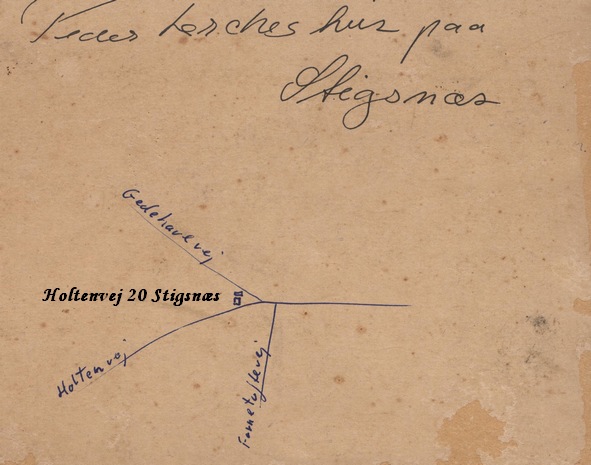 Peder Lerches hus paa
Stigsnæs
Gedehavevej
Holtenvej 20 Stigsnæs
Holtenvej